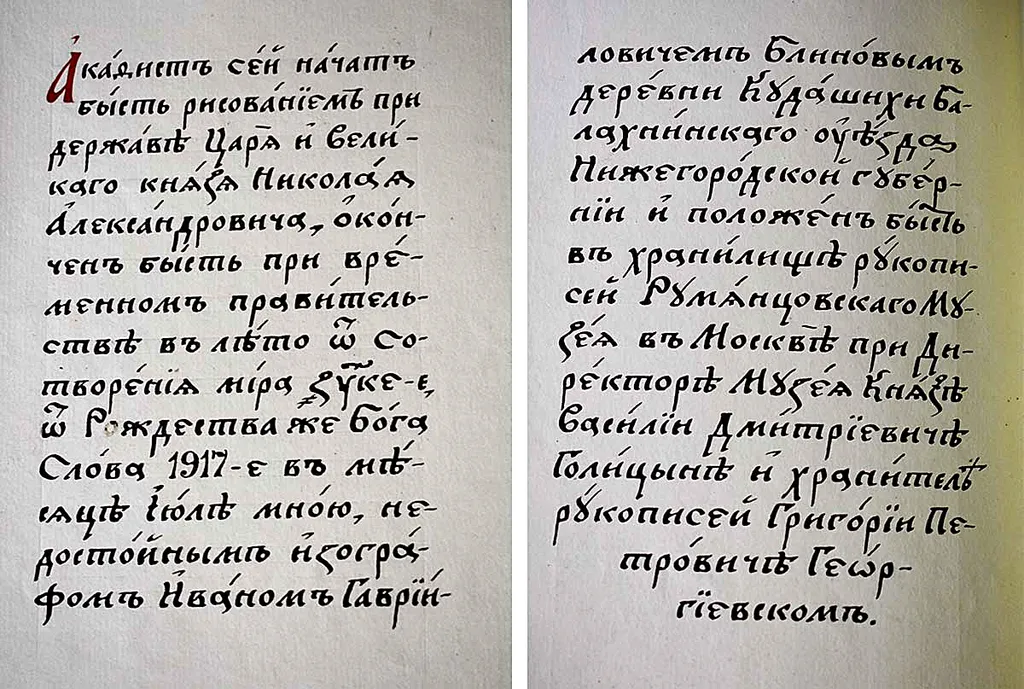 А҆ка́ѳистъ се́й на́чатъ
бы́сть рисова́нїемъ при
держа́вѣ Царѧ̀ и҆ Вели́-
каго кнѧ́зѧ Никола́ѧ
Алекса́ндровича, ѻ҆ко́н-
ченъ бы́сть при вре́-
менномъ прави́тель-
ствѣ въ лѣ́то ѿ Со-
творе́нїѧ мі́ра ҂зу҃ке-е,
ѿ Рождества же Бо́га
Сло́ва 1917-е въ мѣ́-
сѧцѣ І҆ю́лѣ мно́ю, не-
досто́йнымъ и҆зогра́-
фомъ И҆ва́номъ Гаврїи́-
ловичемъ Блино́вымъ
дере́вни Кѹда́шихи Ба-
лахни́нскаго оу҆ѣ́зда
Нижегоро́дской гѹбе́р-
нїи и҆ положе́нъ бы́сть
въ храни́лищѣ рѹ́копи-
сей Рѹмѧ́нцовскаго Мѹ-
зе́ѧ въ Москвѣ̀ при Ди-
ре́кторѣ Мѹзе́ѧ Кнѧ́зѣ
Васи́лїи Дми́трїевичѣ
Голи́цынѣ и҆ храни́телѣ
рѹ́кописей Григо́рїи Пе-
тро́вичѣ Геѡ́р-
гїевскомъ.